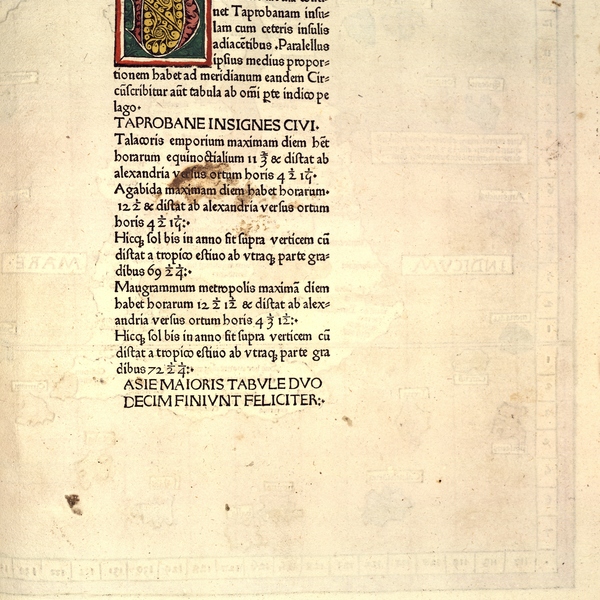 net Taprobanam insu-
lam cum ceteris insulis
adiacētibus .Parallelus
ipsius medius propor-
tionem habet ad meridianum eandem Cir-
cūscribitur aūt tabula ab omi pte indico pe
lago.
TAPROBANE INSIGNES CIVI.
Talacoris emporium maximam diem hēt
horarum equinoctialium 11 & distat ab
alexandria versus ortum horis 4
Agabida maximam diem habet horarum.
12 & distat ab alexandria versus ortum
horis 4
Hicq; sol bis in anno fit supra verticem cū
distat a tropico estiuo ab vtraq; parte gra-
dibus 69
Maugrammum metropolis maximā diem
habet horarum 12 & distat ab alex-
andria versus ortum horis 4
Hicq; sol bis in anno fit supra verticem cū
distat a tropico estiuo ab vtraq; parte gra
dibus 72
ASIE MAIORIS TABVLE DVO
DECIM FINIVNT FELICITER:.
MARE
INDICVM